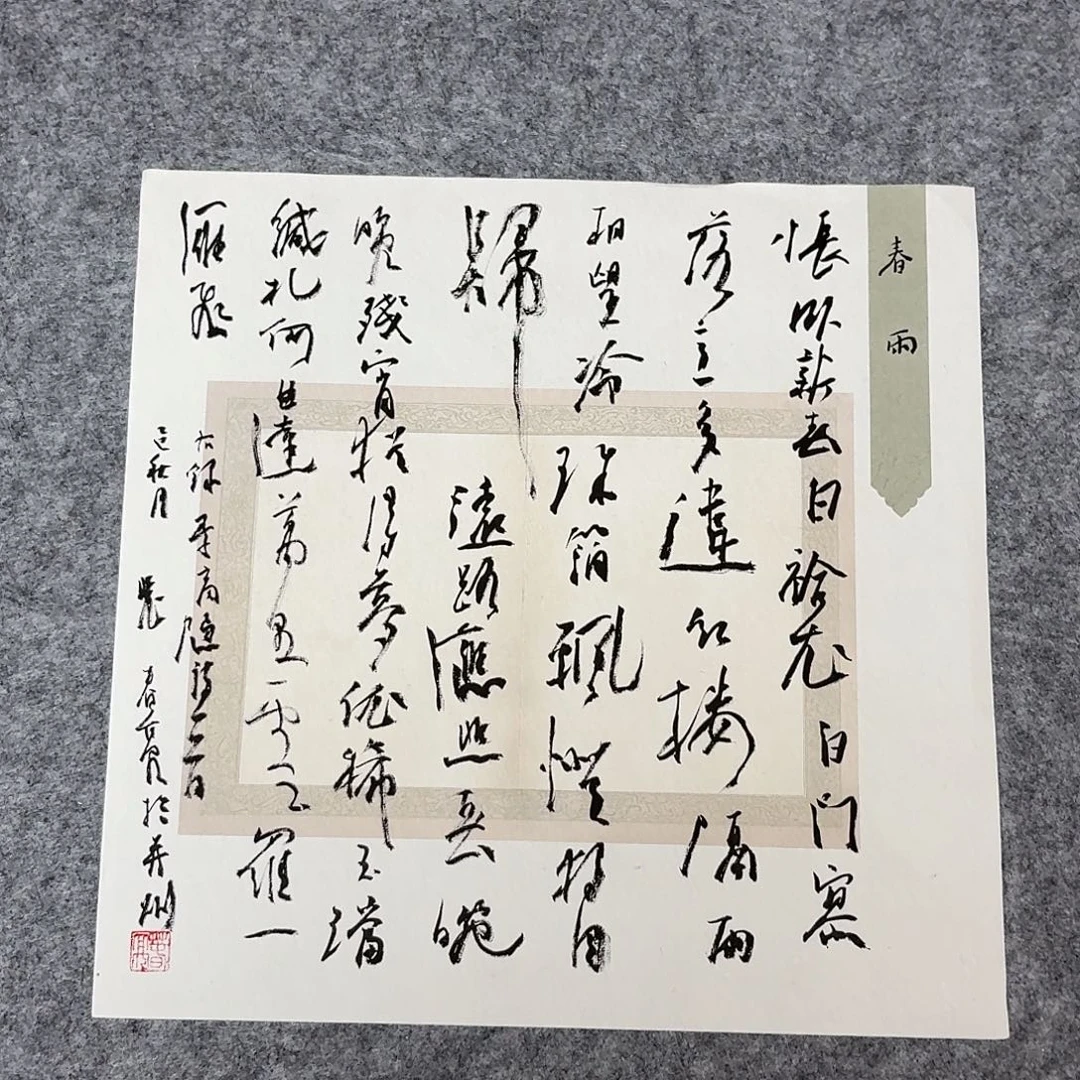 春雨
悵卧新春白袷衣白门寥
落意多違红楼隔雨
相望冷珠箔飄燈独自
歸遠路應悲春晼
晚残宵猶得夢依稀玉璫
緘札何由達萬里雲羅一
雁飛
右録李商隐詩一首
乙巳秋月 於并州